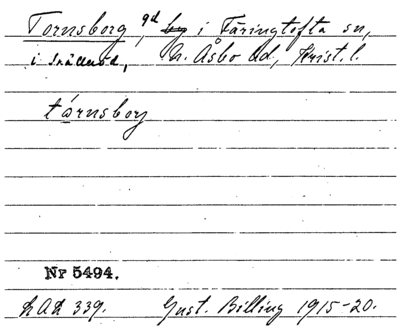 Tornsborg, gd by i Färingtofta sn,
i Skåne, N. Åsbo hd, Krist. l.
tårnsborj
Nr 5494.
LAL 339. Gust. Billing 1915-20.